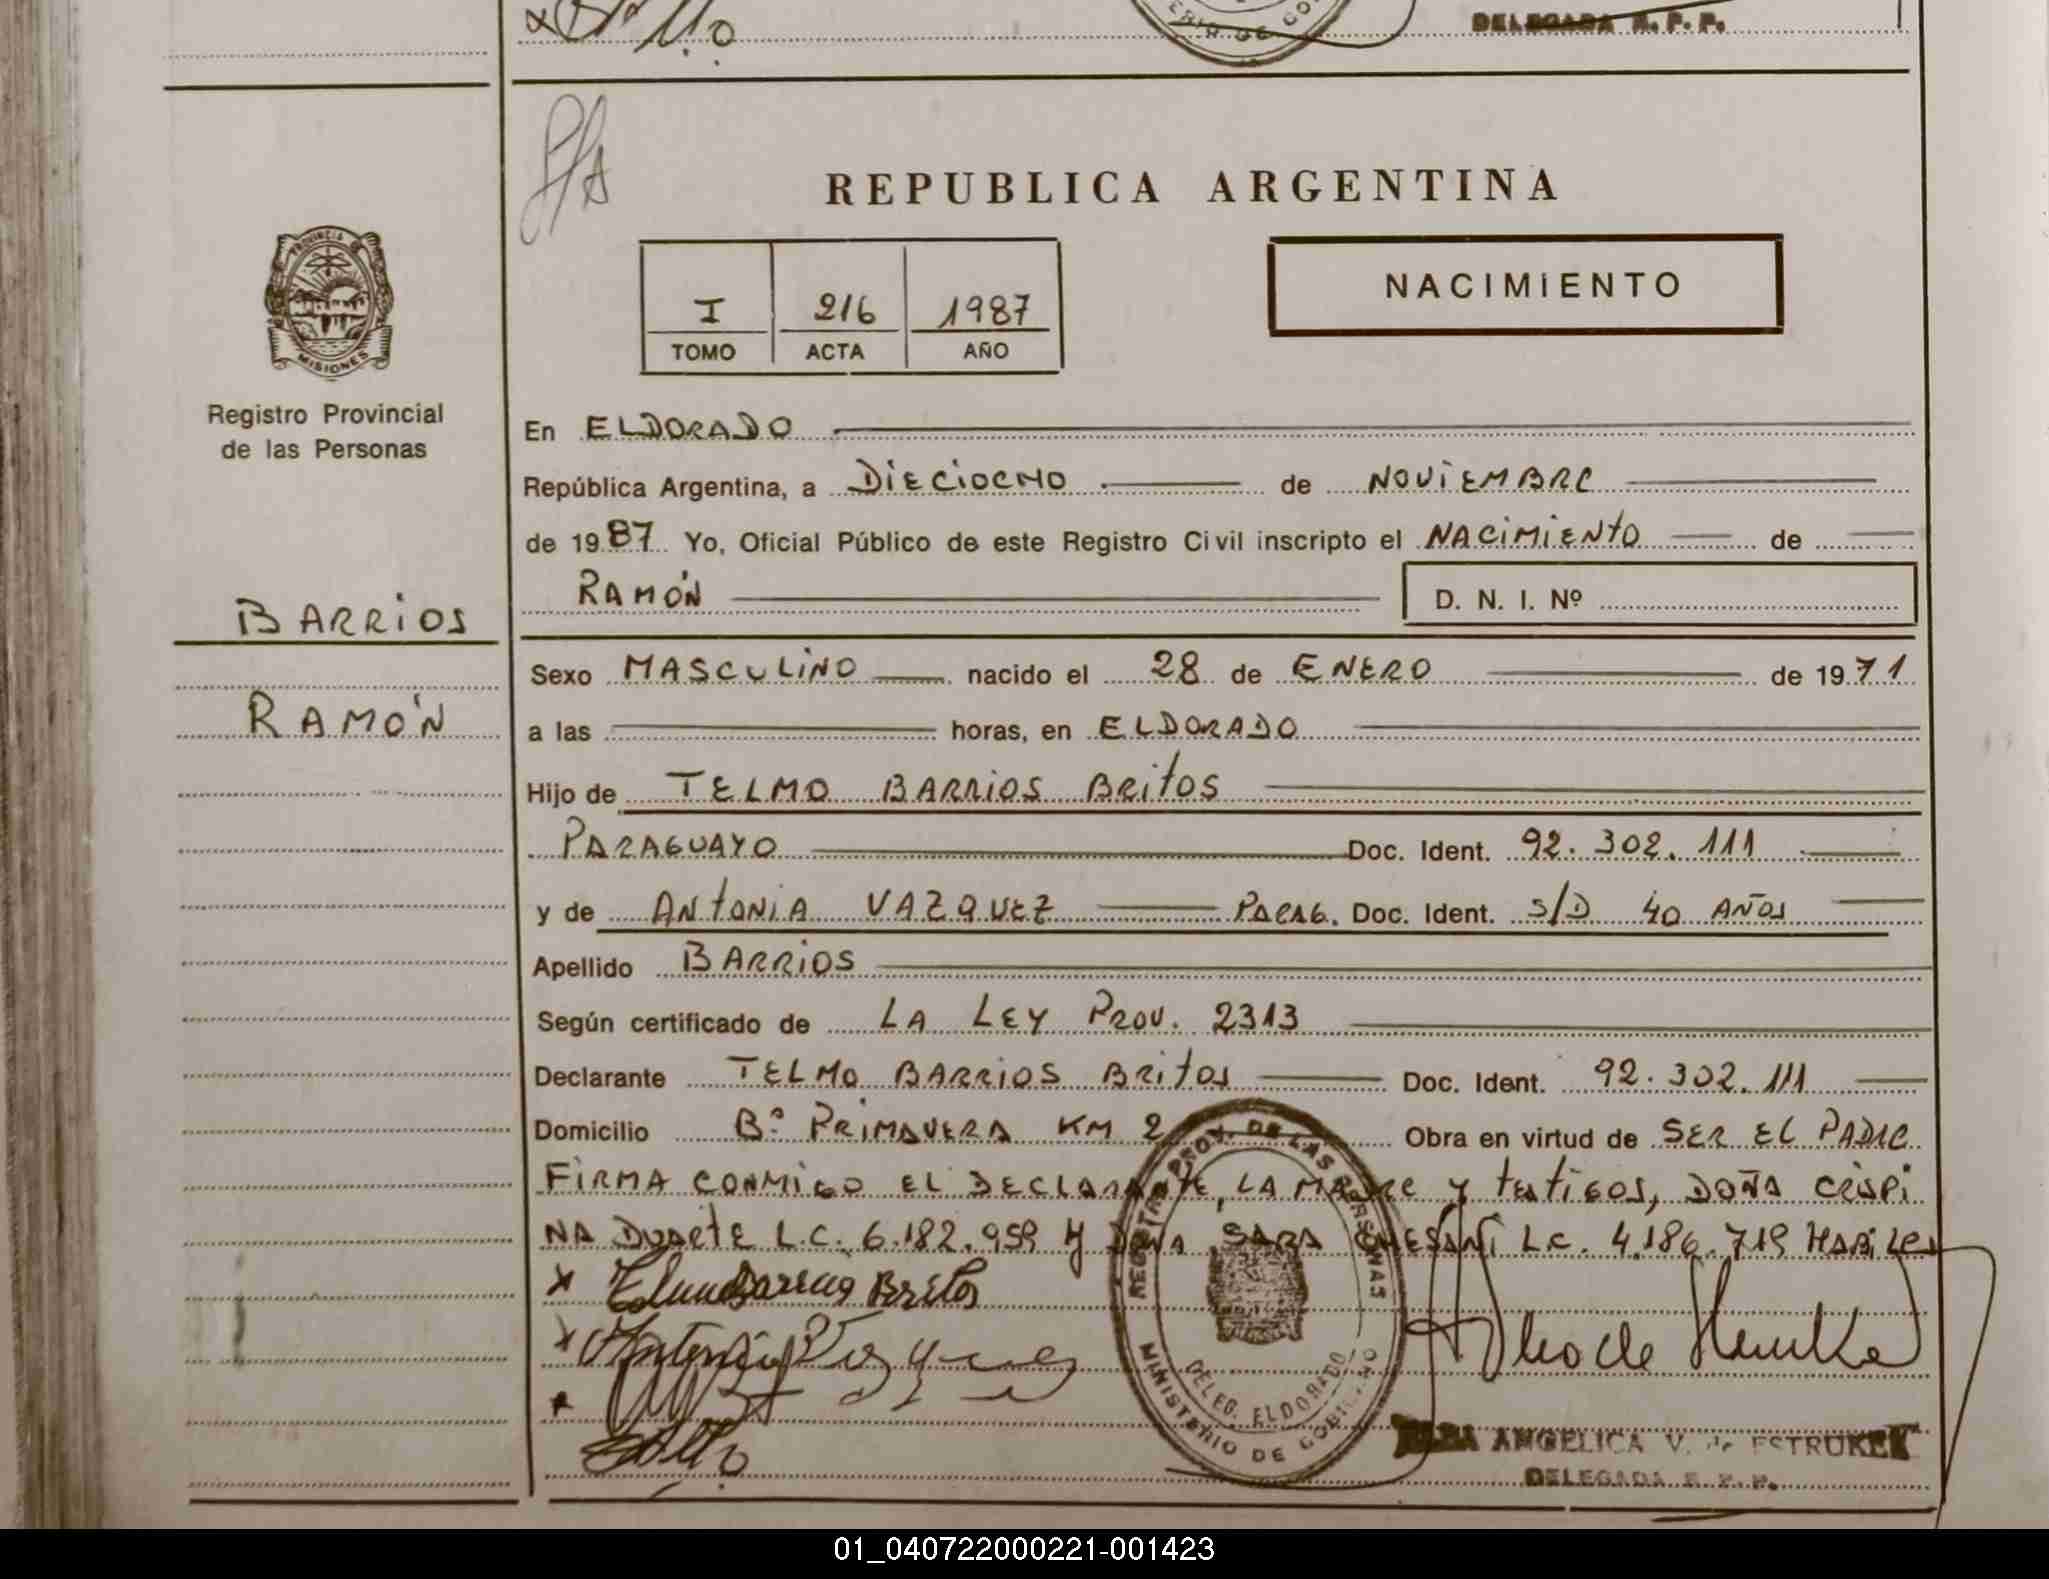 DELEGADA R. P. P.
REPUBLICA ARGENTINA
PROVINCIA DE
MISIONES
Registro Provincial
de las Personas
BARRIOS
RAMÓN
I 216 1987
TOMO ACTA AÑO
NACIMIENTO
En ELDORADO
República Argentina, a DIECIOCHO de NOVIEMBRE
de 1987 Yo, Oficial Público de este Registro Civil inscripto el NACIMIENTO de
RAMÓN D. N. I. Nº
Sexo MASCULINO nacido el 28 de ENERO de 1971
a las horas, en ELDORADO
Hijo de TELMO BARRIOS BRITOS
PARAGUAYO Doc. Ident. 92.302.111
y de ANTONIA VAZQUEZ PARAG. Doc. Ident. S/D 40 AÑOS
Apellido BARRIOS
Según certificado de LA LEY PROV. 2313
Declarante TELMO BARRIOS BRITOS Doc. Ident. 92.302.111
Domicilio Bº PRIMAVERA KM 2 Obra en virtud de SER EL PADRE
FIRMA CONMIGO EL DECLARANTE, LA MADRE Y TESTIGOS, DOÑA CRISPI
NA DUARTE L.C. 6.182.959 Y DOÑA SARA L.C. 4.186.719 HABILES
Telmo Barrios Britos
Antonia Vazquez
REGISTRO PROV. DE LAS PERSONAS
MINISTERIO DE GOBIERNO
DELEG. ELDORADO
ANGELICA V. de ESTRUKEL
DELEGADA R. P. P.
01_040722000221-001423